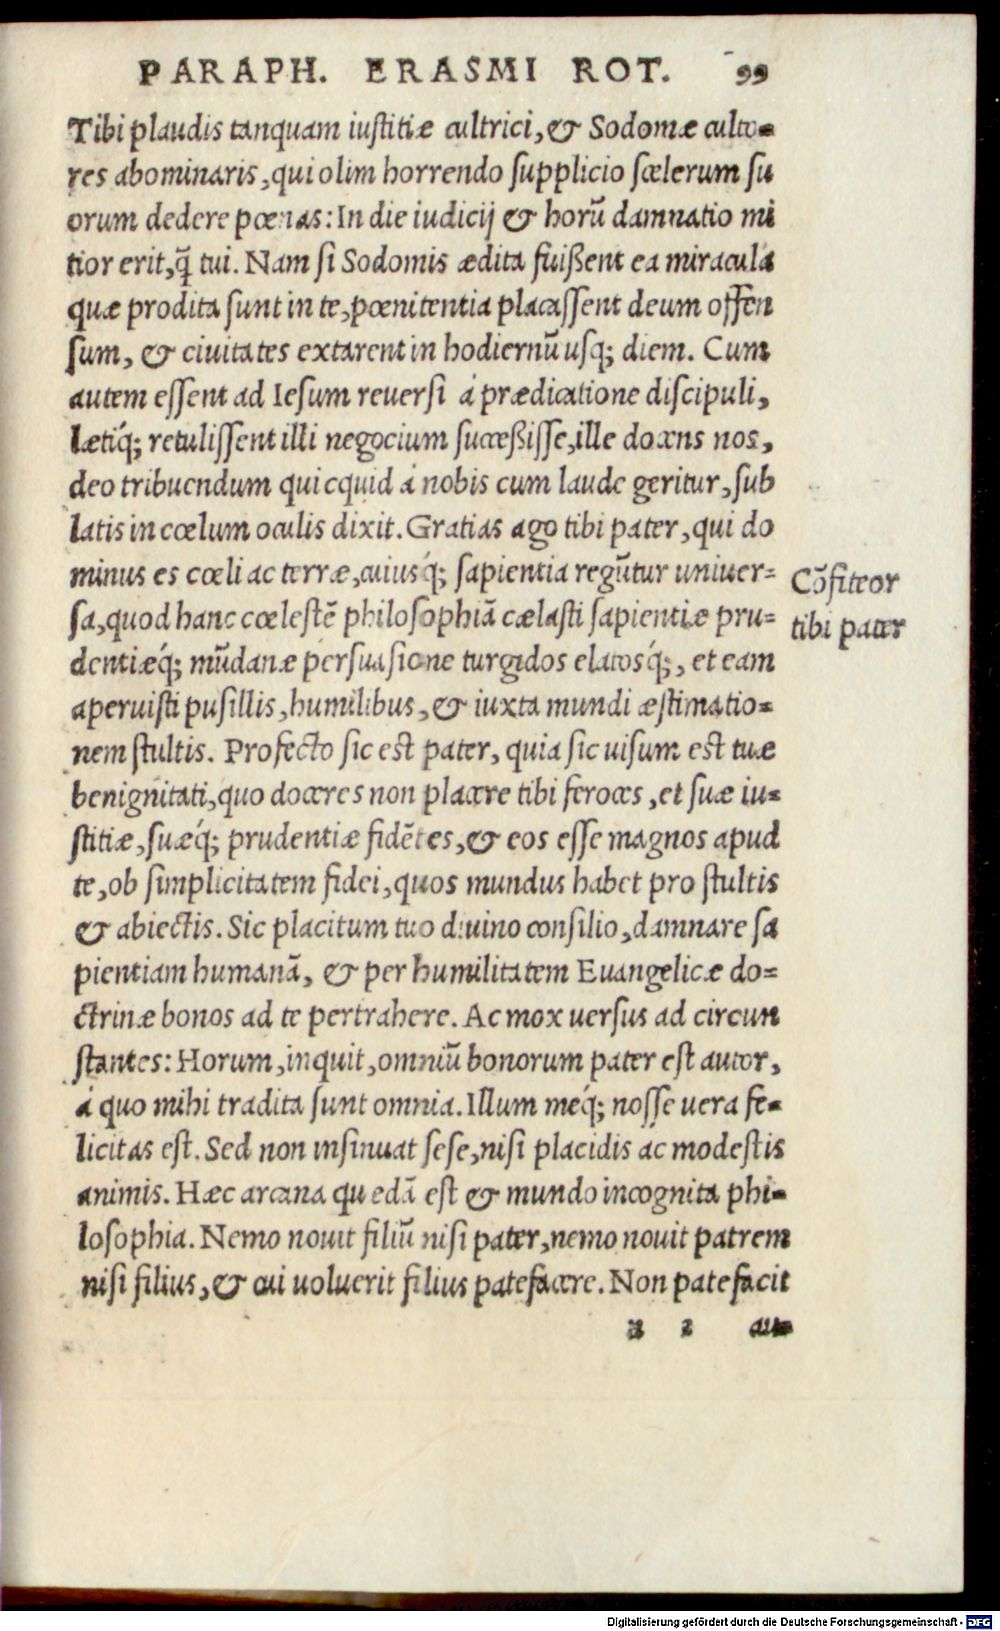 PARAPH. ERASMI ROT. 99
Tibi plaudis tanquam iustitiæ cultrici, & Sodomæ culto-
res abominaris, qui olim horrendo supplicio scelerum su
orum dedere pœnas: In die iudicij & horũ damnatio mi
tior erit, q̃ tui. Nam si Sodomis ædita fuißent ea miracula
quæ prodita sunt in te, pœnitentia placassent deum offen
sum, & ciuitates extarent in hodiernũ usq; diem. Cum
autem essent ad Iesum reuersi à prædicatione discipuli,
lætiq́; retulissent illi negocium succeßisse, ille docens nos,
deo tribuendum quicquid à nobis cum laude geritur, sub
latis in cœlum oculis dixit. Gratias ago tibi pater, qui do
minus es cœli ac terræ, cuiusq́; sapientia regũtur uniuer-
sa, quod hanc cœlestẽ philosophiã cælasti sapientiæ pru-
dentiæq́; mũdanæ persuasione turgidos elatosq́;, et eam
aperuisti pusillis, humilibus, & iuxta mundi æstimatio-
nem stultis. Profecto sic est pater, quia sic uisum est tuæ
benignitati, quo doceres non placere tibi feroces, et suæ iu-
stitiæ, suæq́; prudentiæ fidẽtes, & eos esse magnos apud
te, ob simplicitatem fidei, quos mundus habet pro stultis
& abiectis. Sic placitum tuo diuino consilio, damnare sa
pientiam humanã, & per humilitatem Euangelicæ do-
ctrinæ bonos ad te pertrahere. Ac mox uersus ad circun
stantes: Horum, inquit, omniũ bonorum pater est autor,
à quo mihi tradita sunt omnia. Illum meq́; nosse uera fe-
licitas est. Sed non insinuat sese, nisi placidis ac modestis
animis. Hæc arcana quedã est & mundo incognita phi-
losophia. Nemo nouit filiũ nisi pater, nemo nouit patrem
nisi filius, & cui uoluerit filius patefacere. Non patefacit
2 au-
Cõfiteor
tibi pater
Digitalisierung gefördert durch die Deutsche Forschungsgemeinschaft - DFG